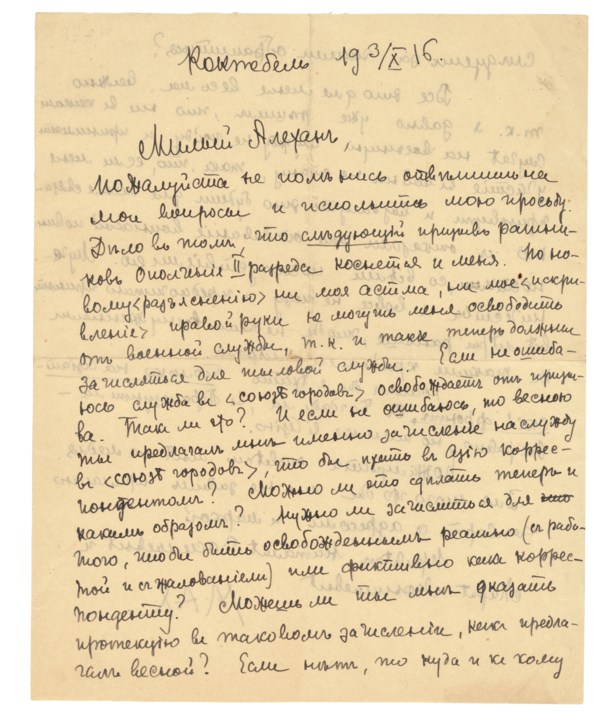 Коктебель 19 3/X 16.
Милый Алехан,
пожалуйста не полѣнись отвѣтить на
мои вопросы и исполнить мою просьбу.
Дѣло въ томъ, что слѣдующій призывъ ратни-
ковъ Ополченія II разряда коснется и меня. По но-
вому <разъясненію> ни моя астма, ни мое <искри-
вленіе> правой руки не могутъ меня освободить
отъ военной службы, т.к. и такіе теперь должны
зачисляться для тыловой службы. Если не ошиба-
юсь служба въ <союзѣ городовъ> освобождаетъ отъ призы-
ва. Такъ ли это? И если не ошибаюсь, то весною
ты предлагалъ мнѣ именно зачисленіе на службу
въ <союзѣ городовъ>, что бы ѣхать въ Азію коррес-
пондентомъ? Можно ли это сдѣлать теперь и
какимъ образомъ? Нужно ли зачислиться для
того, чтобы быть освобожденнымъ реально (съ рабо-
той и съ жалованіемъ) или фиктивно какъ коррес-
понденту? Можешь ли ты мнѣ оказать
протекцію въ таковомъ зачисленіи, какъ предла-
галъ весной? Если нѣтъ, то куда и къ кому